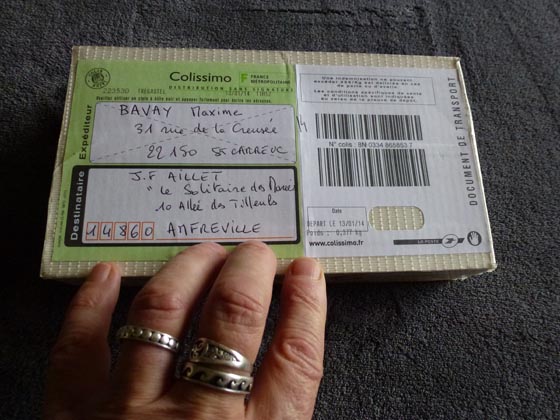 Colissimo F FRANCE
MÉTROPOLITAINE
DISTRIBUTION SANS SIGNATURE
223530 TREGASTEL
Expéditeur
BAVAY Maxime
31 rue de la Creusée
22150 St CARREUC
Destinataire
J.F AILLET
"Le Solitaire des
10 Allée des Tilleuls
14860 AMFREVILLE
Une indemnisation ne pouvant
N° colis : 8N 0334 865853 7
Date
DEPART LE 13/01/14
Poids : 0,377 kg
www.colissimo.fr
LA POSTE
DOCUMENT DE TRANSPORT